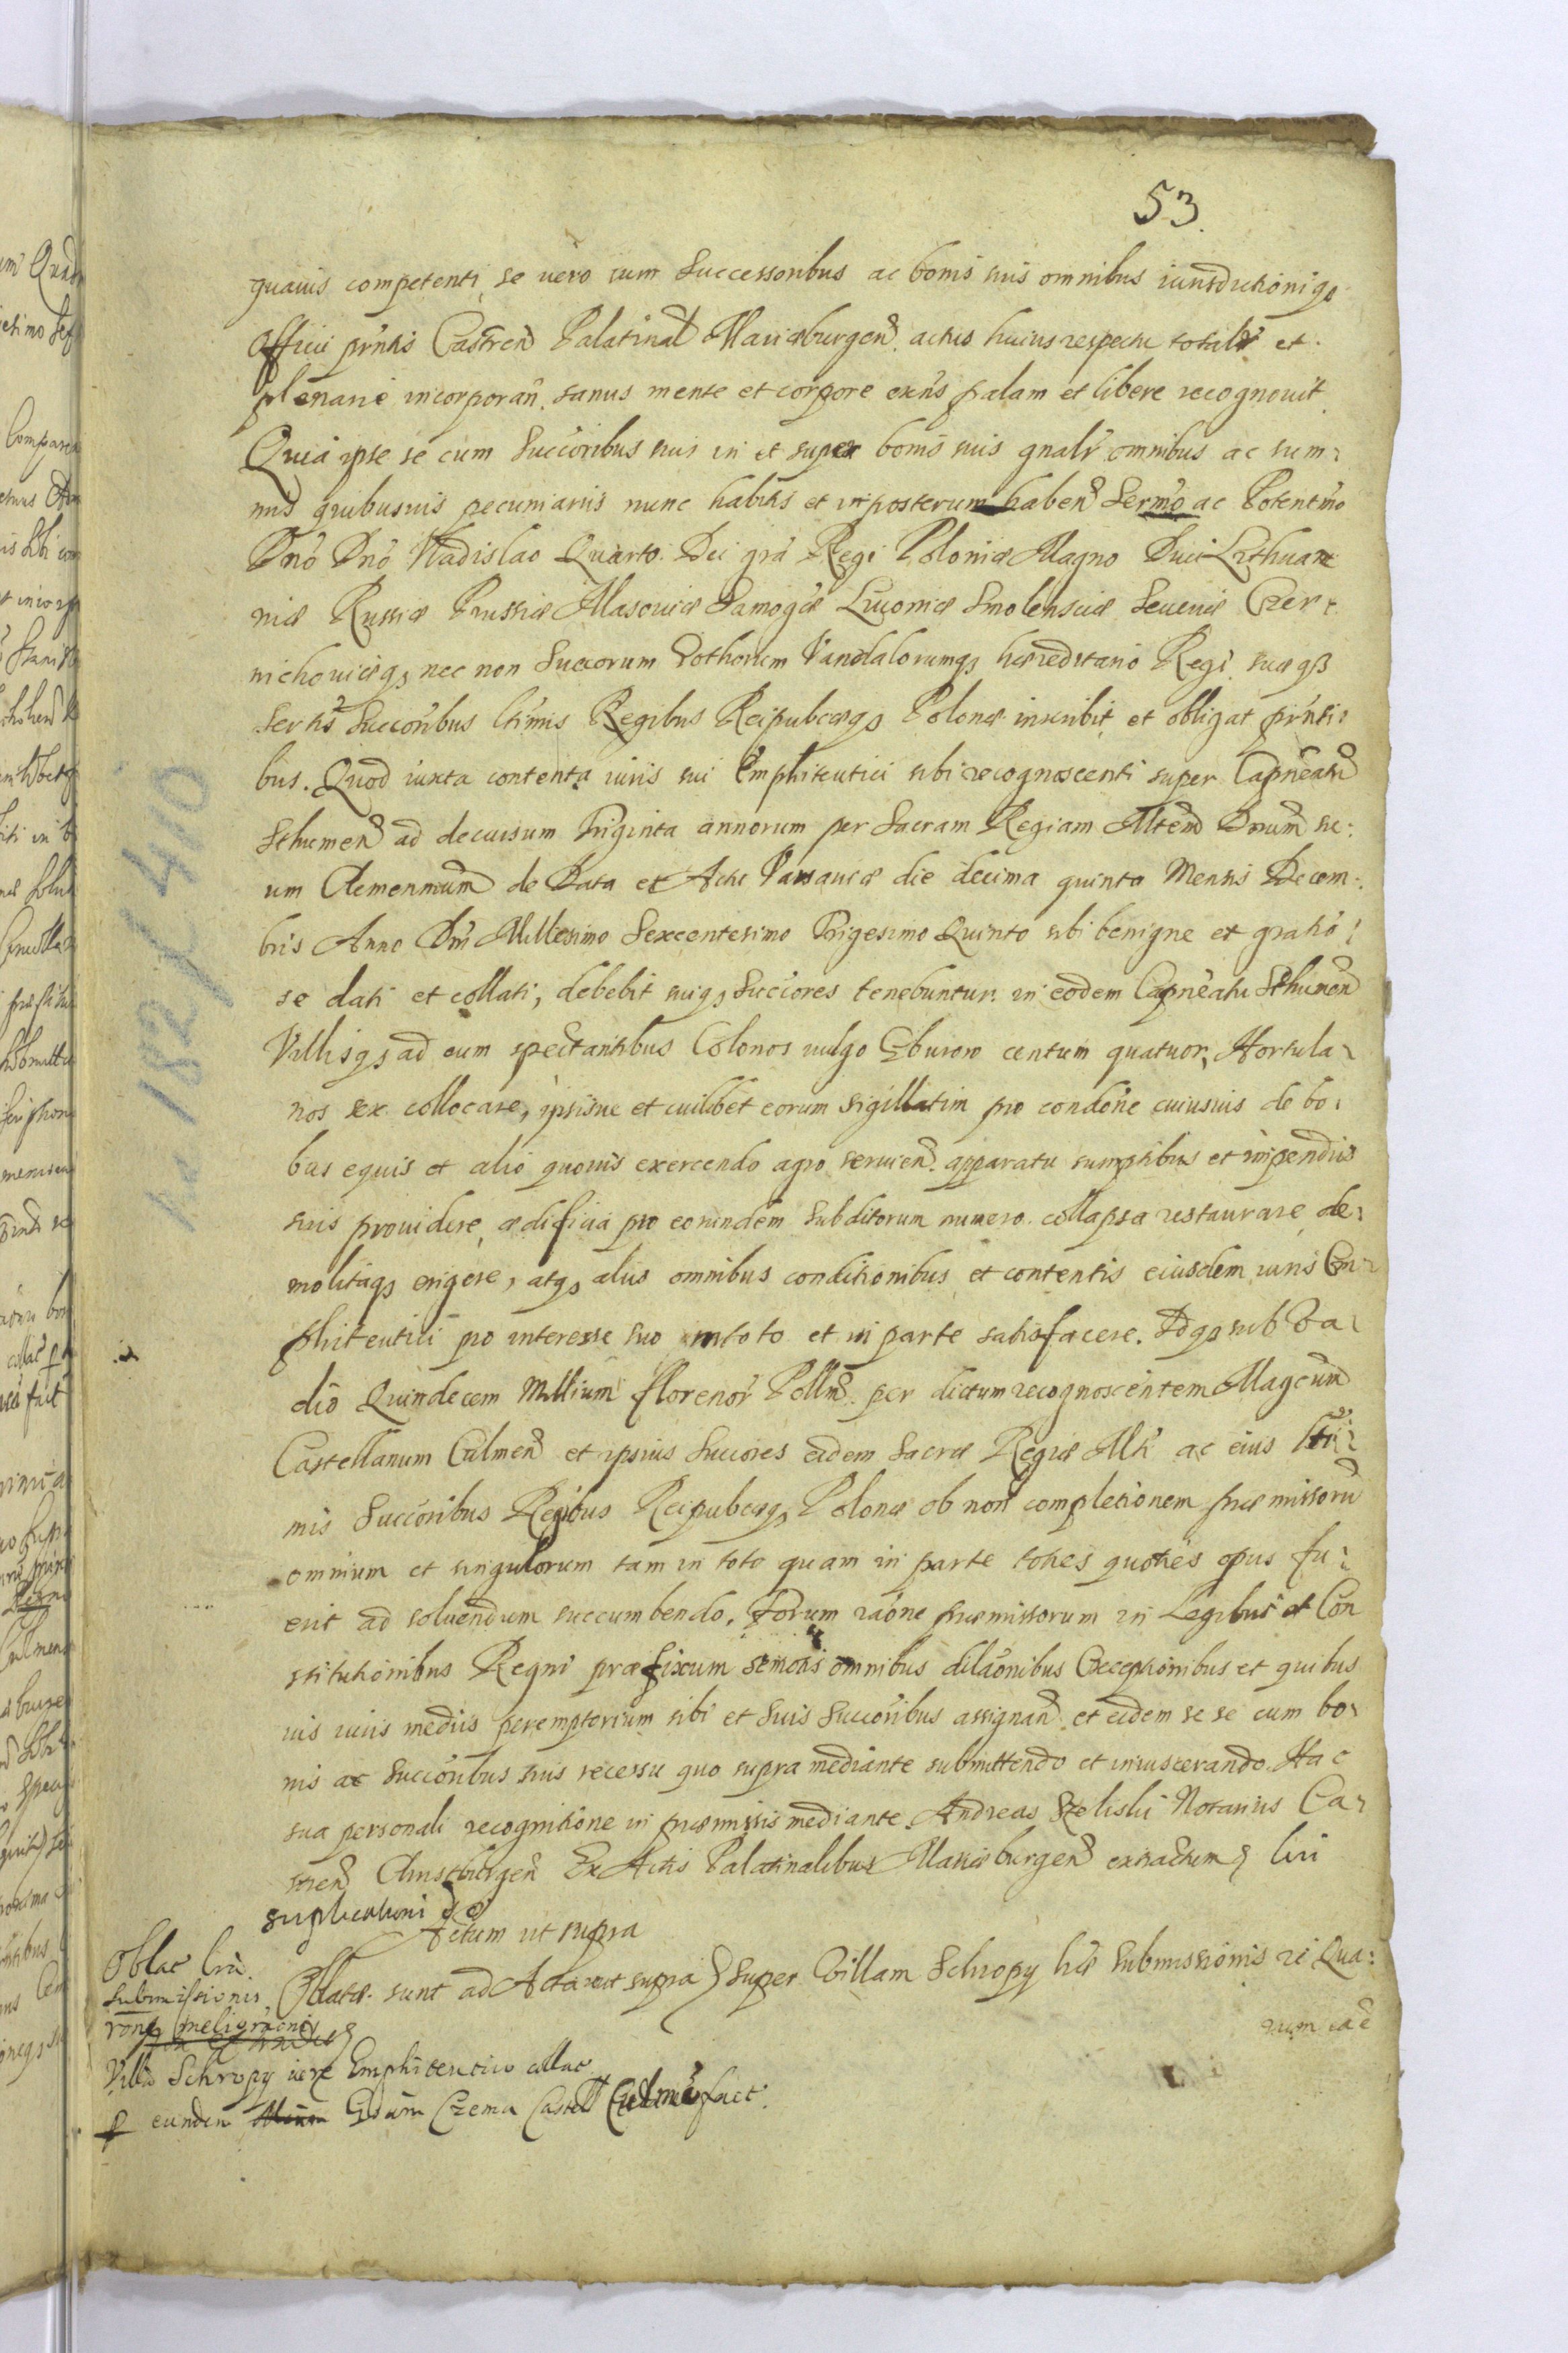 53.
quauis competenti, se uero cum Successoribus ac bonis suis omnibus iurisdictioniq3
Officii prntis Castren Palatinal Mariæburgen. actus huius respectu totalr et
plenarie incorporan. sanus mente et corpore exns palam et libere recognouit
Quia ipse se cum Succoribus suis in et super bonis suis gnalr omnibus ac sum:
mis quibusuis pecuniariis nunc habitis et inposterum haben Sermo ac Potentmo
Dno Dno Wladislao Quarto Dei gra Regi Poloniæ Magno Duci Lithuan
niæ Russiæ Prussiæ Masouiæ Samogæ Liuoniæ Smolensciæ Seueriæ Czer:
nichouiæq3 nec non Suecorum Gothorum Vandalorumq3 hæreditario Regi suæq3
Sertis Succoribus ltimis Regibus Reipubcæq3 Polonæ inscribit et obligat prnti:
bus. Quod iuxta contenta iuris sui Emphiteutici sibi recognoscenti super Capneatu
Sthumen ad decursum triginta annorum per Sacram Regiam Mttem Dnum su:
um Clemenmum de Data et Actu Varsauiæ die decima quinta Mensis Decem:
bris Anno Dni Millesimo Sexcentesimo Trigesimo Quinto sibi benigne et gratio:
se dati et collati, debebit suiq3 Succores tenebuntur in eodem Capneatu Sthumen
Villisq3 ad eum spectantibus Colonos uulgo Gburow centum quatuor, Hortula:
nos sex collocare, ipsisue et cuilibet eorum sigillatim pro condone cuiusuis de bo:
bus equis et alio quouis exercendo agro seruien. apparatu sumptibus et impendiis
suis prouidere, ædificia pro eorundem subditorum numero collapsa restaurare de:
molitaq3 erigere, atq3 aliis omnibus conditionibus et contentis eiusdem iuris Em:
phiteutici pro interesse suo in toto et in parte satisfacere. Idq3 sub Va:
dio Quindecem Millium florenor Pollm. per dictum recognoscentem Magcum
Castellanum Culmen et ipsius Succores eidem Sacræ Regiæ Mti ac eius ltti:
mis Succoribus Regibus Reipubcæq3 Polonæ ob non completionem præmissoru
omnium et singulorum tam in toto quam in parte toties quoties opus fu:
erit ad soluendum succumbendo. Forum raone præmissorum in Legibus et Con
stitutionibus Regni præfixum semotis omnibus dilaonibus Exceptionibus et quibus
uis iuris mediis peremptorium sibi et suis Succoribus assignan. et eidem se se cum bo:
nis ac Succoribus suis recessu quo supra mediante submittendo et inuiscerando. Hac
sua personali recognitione in præmissis mediante. Andreas Notarius Ca:
stren Chrisburgen Ex Actis Palatinalibus Mariæburgen extractum liri
suplicationi
Actum ut supra
Oblatæ sunt ad Acta ut supra super Villam Schropy hæ submissionis ri Qua:
rum
Oblac lru.
submissionis
rone melioraonis
Villa Schropy iure Emphiteutico collac
p eundem Gsum Czema Castell Culmen fact.
No 182 / 410